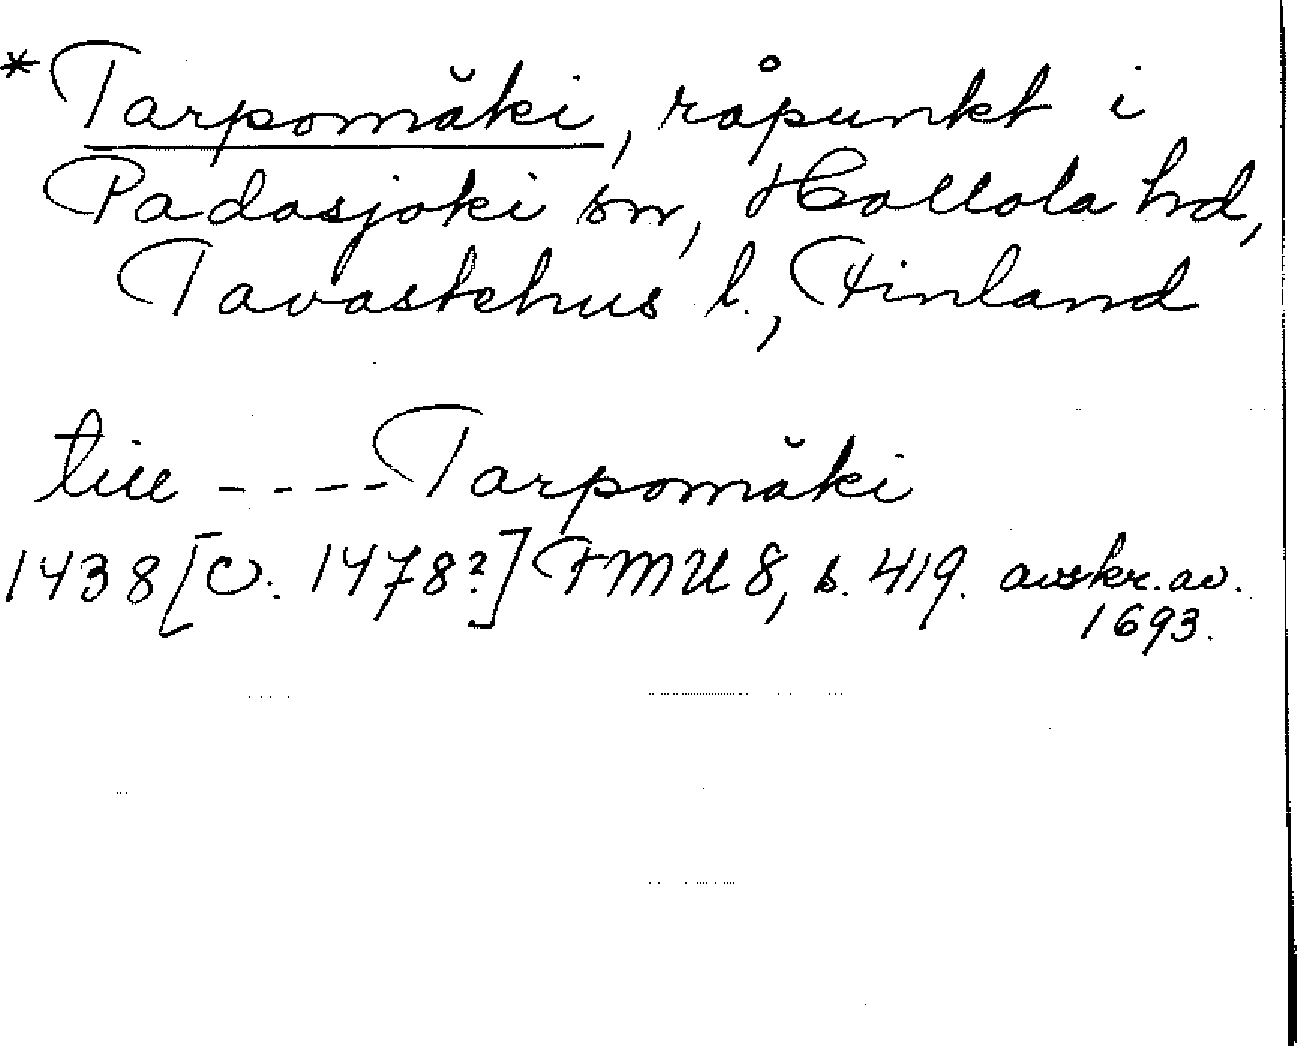 *Tarpomäki, råpunkt i
Padasjoki sn, Hollola hd,
Tavastehus l., Finland
till ---- Tarpomäki
1438 [O: 1478?] FMU 8, s. 419. avskr. av.
1693.